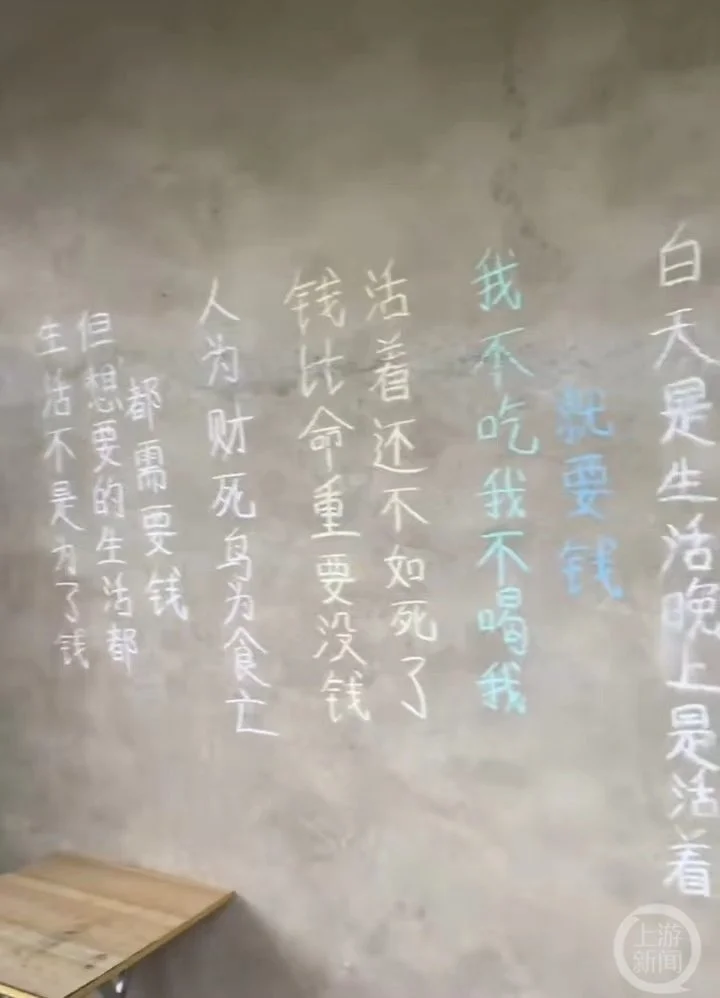 生活不是为了钱
但想要的生活都
都需要钱
人为财死鸟为食亡
钱比命重要没钱
活着还不如死了
我不吃我不喝我
就要钱
白天是生活晚上是活着
上游
新闻